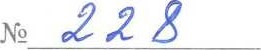 № 228